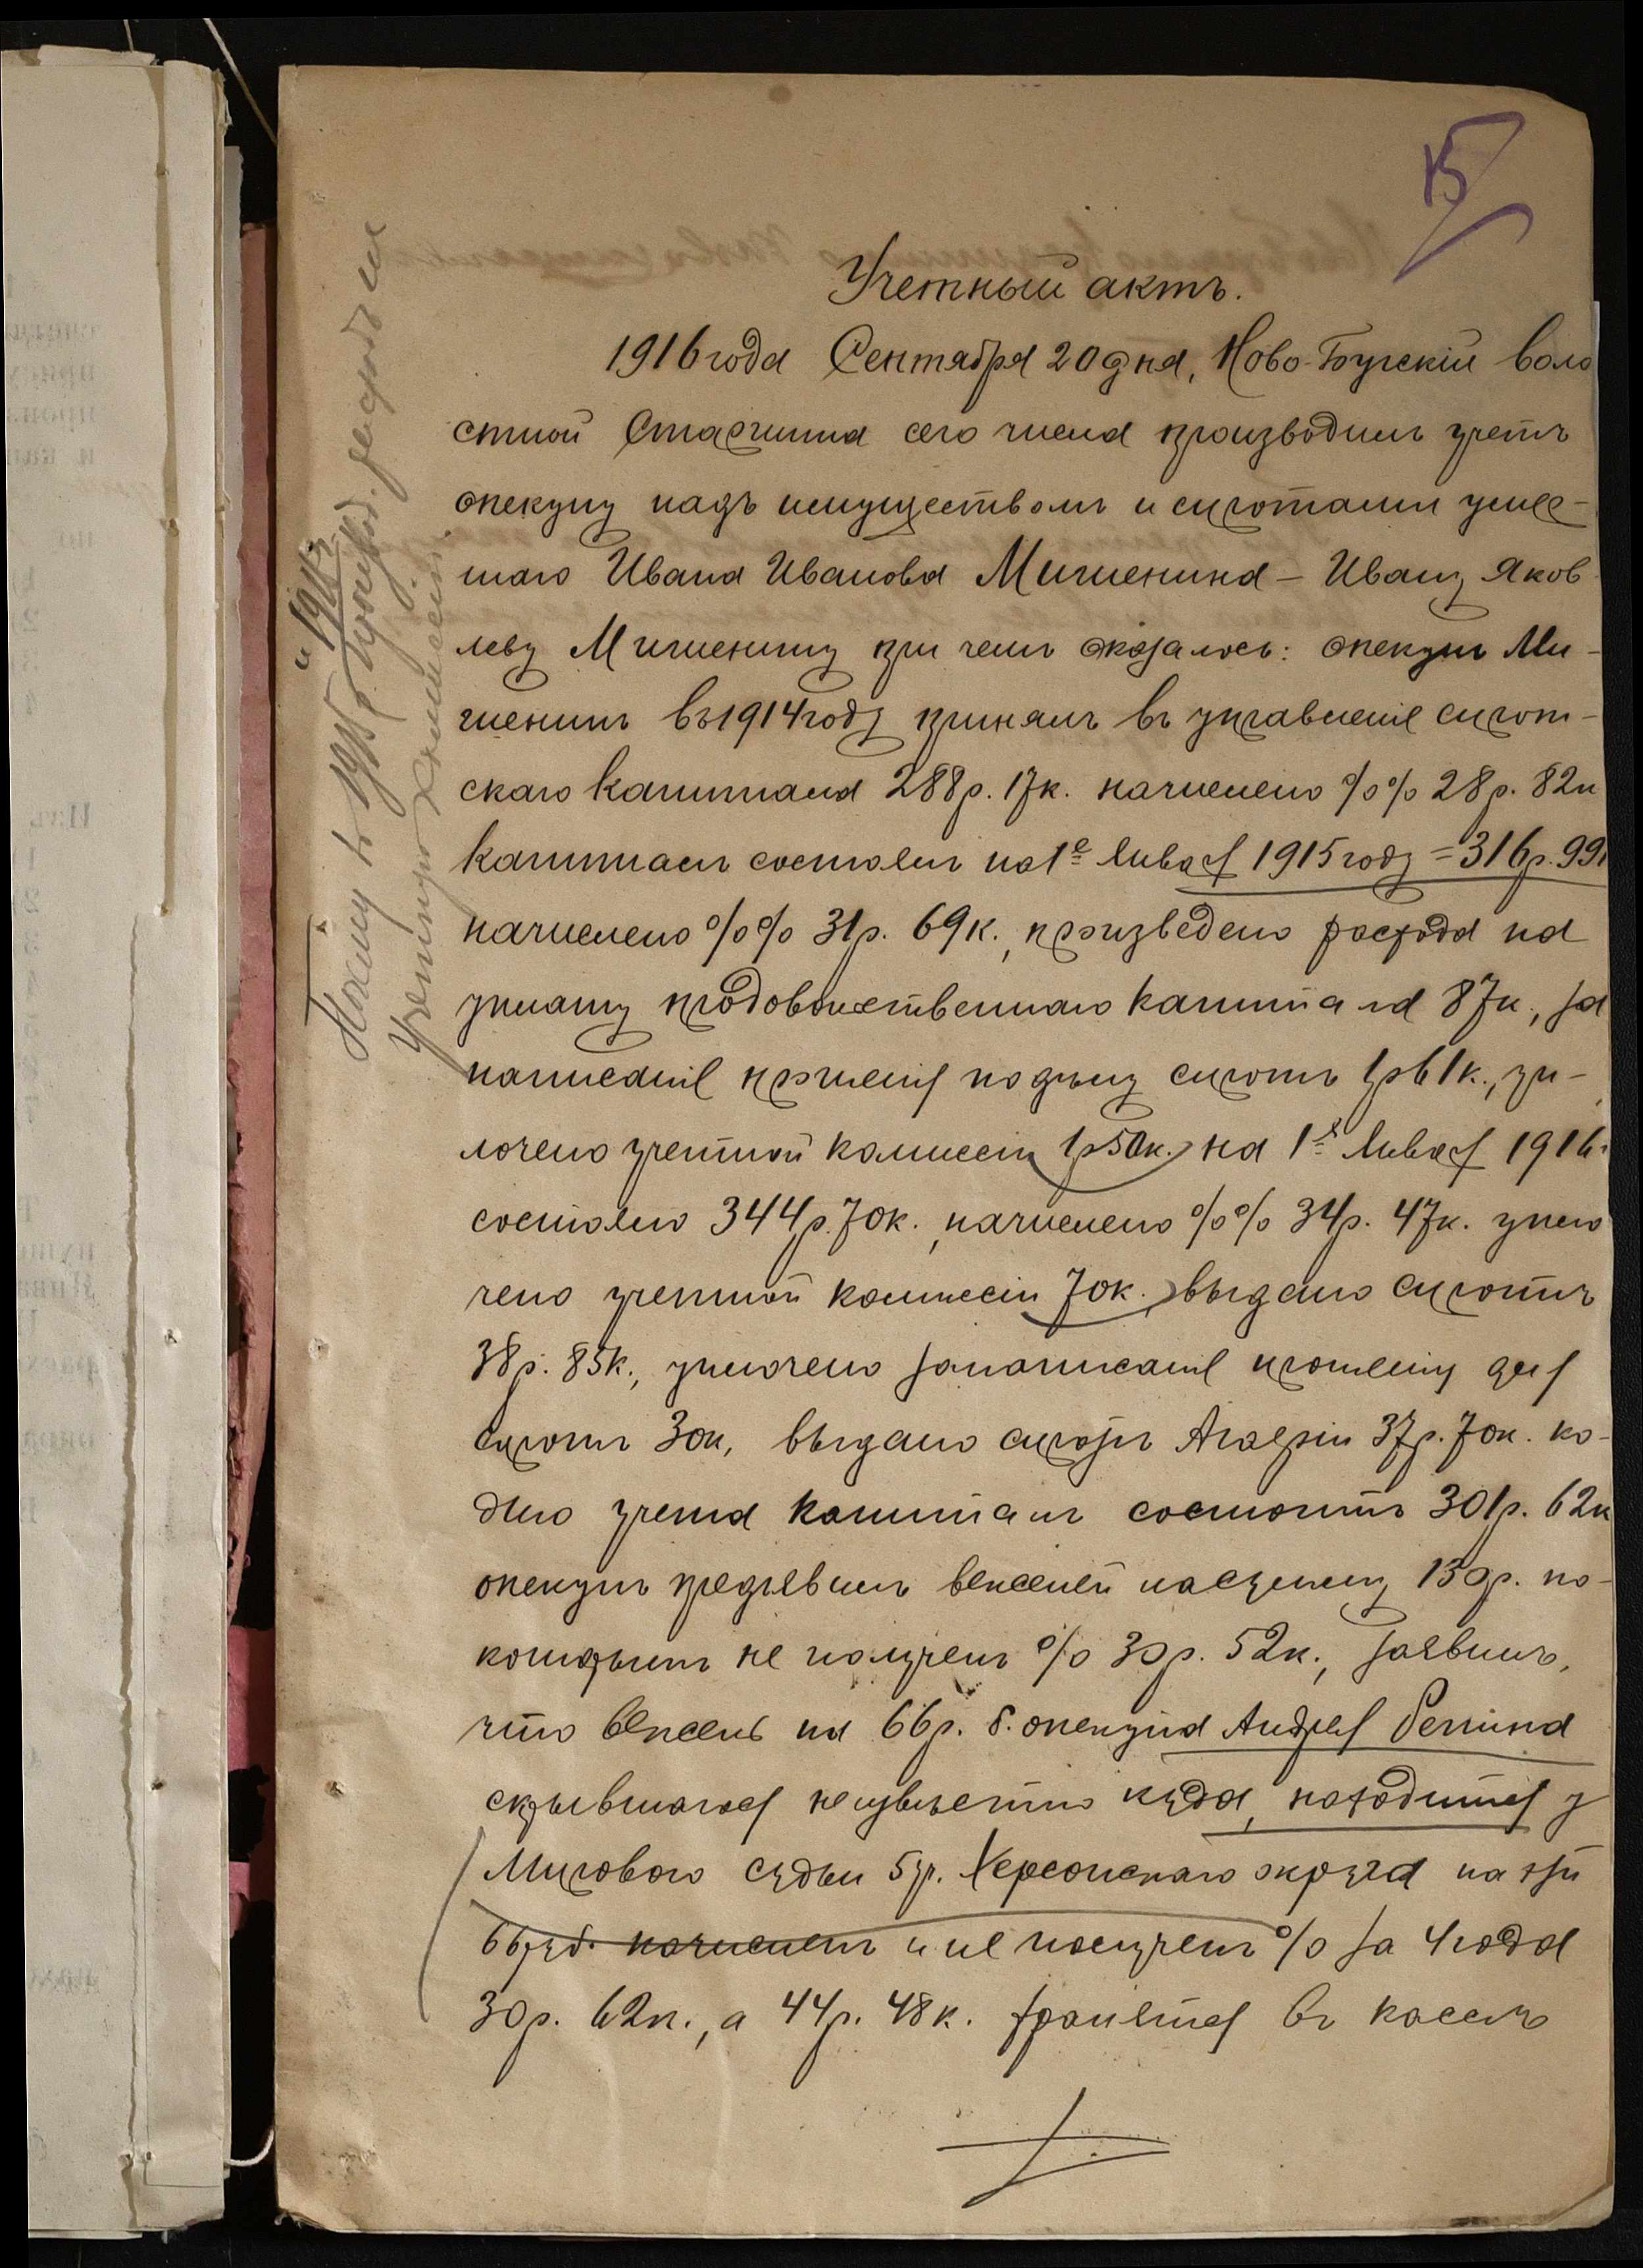 15
Учетный актъ.
1916 года Сентября 20 дня, Ново-Бугскій воло
стной Старшина сего числа производилъ учетъ
опекуну надъ имуществомъ и сиротами умер-
шаго Ивана Иванова Мишенина – Ивану Яков
леву Мишенину при чемъ оказалось: опекунъ Ми-
шенинъ въ 1914 году принялъ въ управленіе сирот-
скаго капитала 288 р. 17 к. начислено %% 28 р. 82 к
капиталъ состоялъ на 1е Января 1915 году = 316 р. 99
начислено %% 31 р. 69 к., произведено расхода на
уплату продовольственнаго капитала 87 к., за
написаніе прошенія сиротъ 1 р 61 к., уп-
лочено учетной комиссіи 1 р 50 к. на 1е Января 1916
состояло 344 р. 70 к., начислено %% 34 р. 47 к. упло
чено учетной комиссіи 70 к. выдано сиротѣ
38 р. 85 к., уплочено за написаніе прошенія для
сиротъ 30 к, выдано сиротѣ 37 р. 70 к. ко-
дню учета капиталъ состоитъ 301 р. 62 к
опекунъ предъявилъ векселей на сумму 130 р. по-
которымъ не получены % 30 р. 52 к., заявилъ,
что вексель на 66 р. б. опекуна Андрея Репина
скрывшагося неизвѣстно куда, находится у
Мирового судьи 5 у. Херсонскаго округа на эти
66 руб. начислены и не получены % за 4 года
30 р. 62 к., а 44 р. 48 к. хранятся въ кассѣ
Почему въ 1915 и 1915 г. производ. расходъ на
Учетную комиссію.